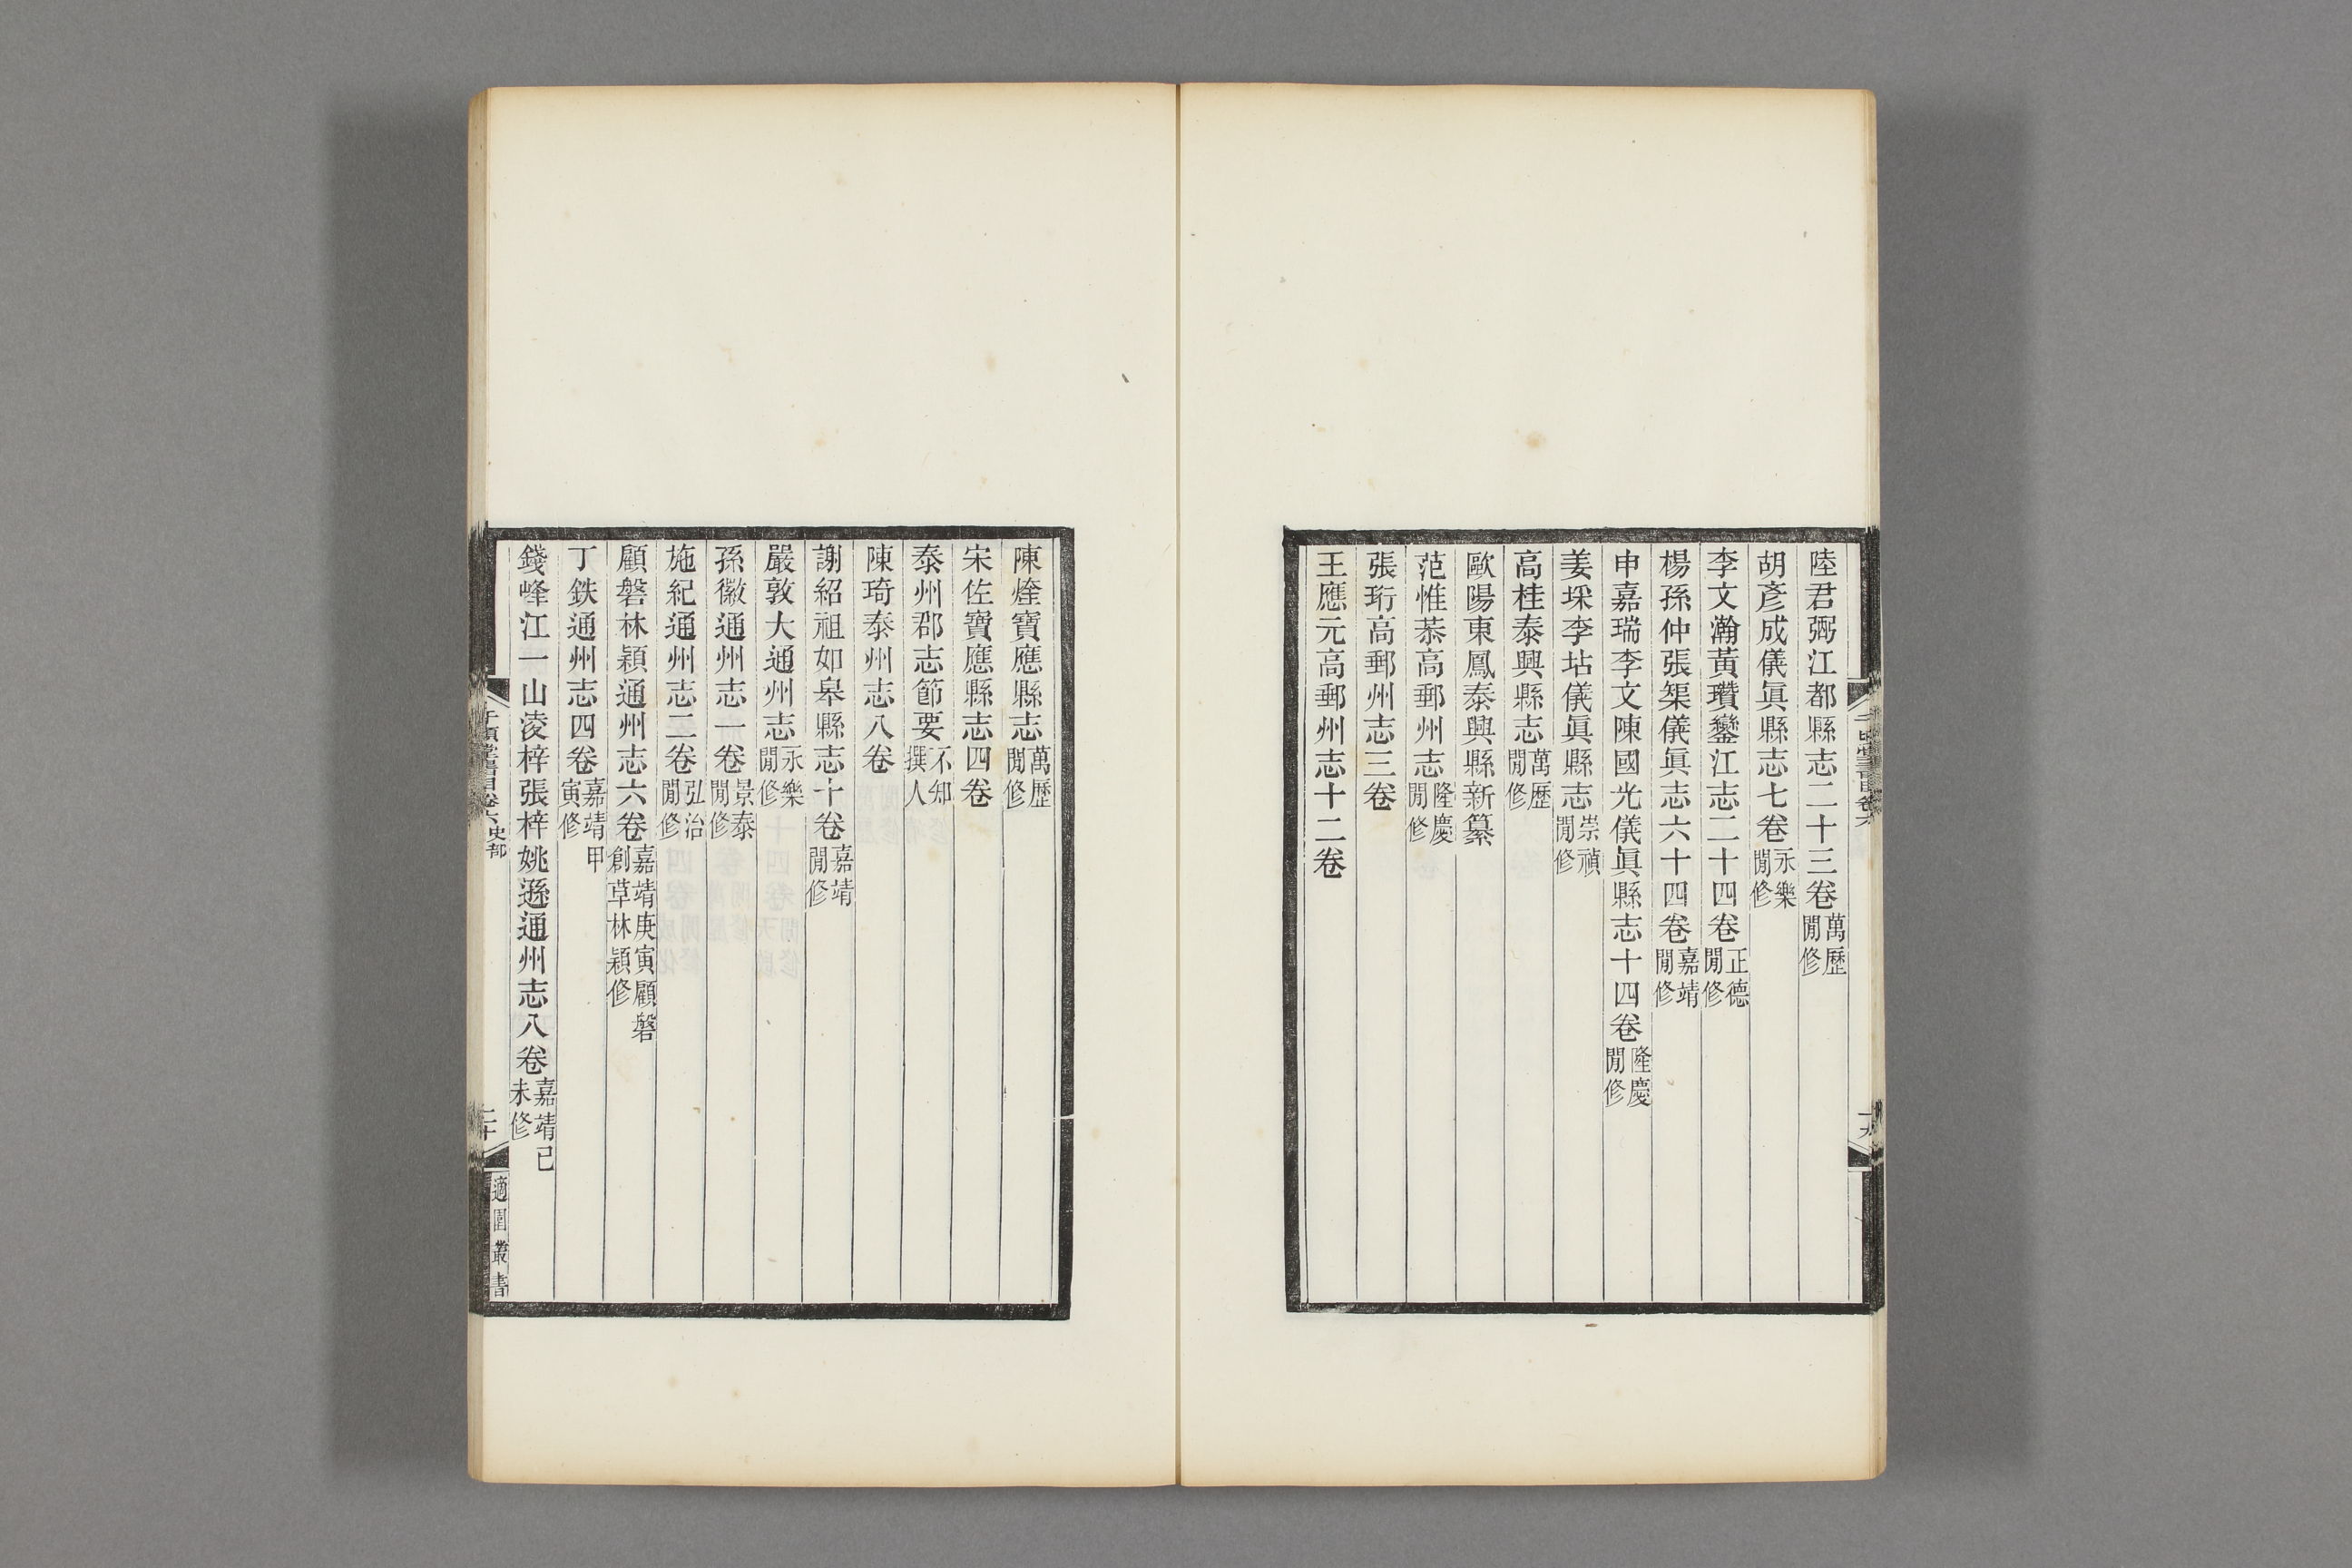 陸君弼江都縣志二十三卷萬歷閒修
胡彥成儀眞縣志七卷永樂閒修
李文瀚黃瓚鑾江志二十四卷正德閒修
楊孫仲張榘儀眞志六十四卷嘉靖閒修
申嘉瑞李文陳國光儀眞縣志十四卷隆慶閒修
姜埰李坫儀眞縣志崇禎閒修
高桂泰興縣志萬歷閒修
歐陽東鳳泰興縣新纂
范惟恭高郵州志隆慶閒修
張珩高郵州志三卷
王應元高郵州志十二卷
陳煃寶應縣志萬歷閒修
宋佐寶應縣志四卷
泰州郡志節要不知撰人
陳琦泰州志八卷
謝紹祖如皋縣志十卷嘉靖閒修
嚴敦大通州志永樂閒修
孫徽通州志一卷景泰閒修
施紀通州志二卷弘治閒修
顧磐林穎通州志六卷嘉靖庚寅顧磐創草林穎修
丁鈇通州志四卷嘉靖甲寅修
錢峰江一山凌梓張梓姚遜通州志八卷嘉靖己未修
千頃堂書目卷六史部
二十
適園叢書